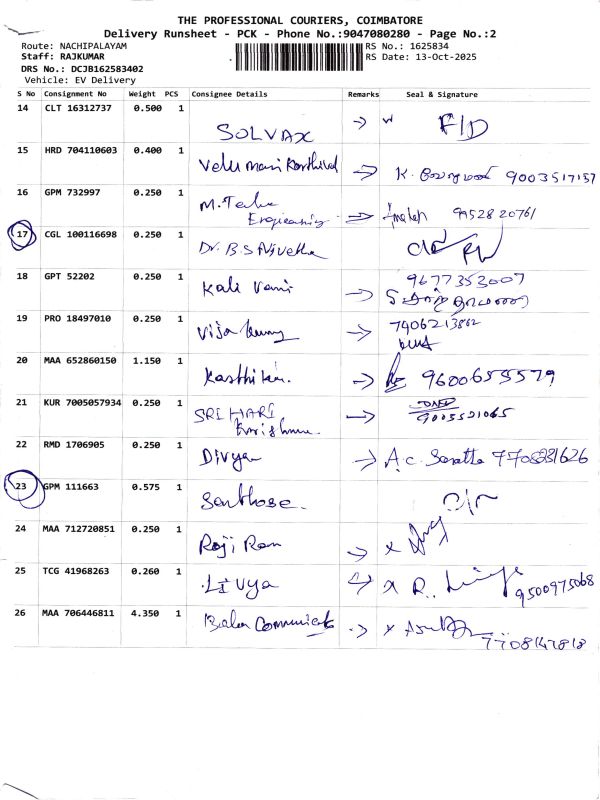 THE PROFESSIONAL COURIERS, COIMBATORE
Delivery Runsheet - PCK - Phone No.:9047080280 - Page No.:2
Route: NACHIPALAYAM RS No.: 1625834
Staff: RAJKUMAR RS Date: 13-Oct-2025
DRS No.: DCJB162583402
Vehicle: EV Delivery
S No Consignment No Weight PCS Consignee Details Remarks Seal & Signature
14 CLT 16312737 0.500 1 SOLVAX
15 HRD 704110603 0.400 1 K. 9003517157
16 GPM 732997 0.250 1 M. 9952820761
17 CGL 100116698 0.250 1 Dr. B.S
18 GPT 52202 0.250 1 Kali Vani 9677353007
19 PRO 18497010 0.250 1 7406213862
20 MAA 652860150 1.150 1 9600655579
21 KUR 7005057934 0.250 1 SRI HARI
22 RMD 1706905 0.250 1 Divya A.c.
23 GPM 111663 0.575 1 Santhose.
24 MAA 712720851 0.250 1 Raji Ram x
25 TCG 41968263 0.260 1 Livya x R. 9500975068
26 MAA 706446811 4.350 1 x